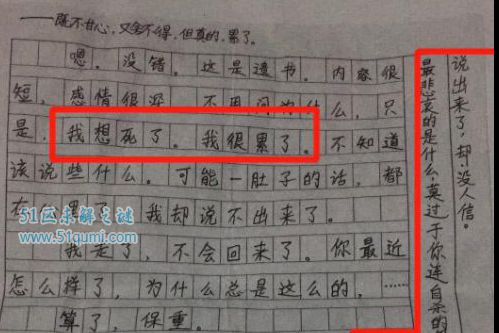 ——既不甘心,又舍不得,但真的,累了。
嗯。没错。这是遗书。内容很
短,感情很深。不用问为什么,只
是,我想死了。我很累了。不知道
该说些什么。可能一肚子的话,都
在 累了。我却说不出来了。
我走了,不会回来了。你最近
怎么样了,为什么总是这么的,……
算了,保重。
最悲哀的是什么,莫过于你连自杀的
说出来了,却没人信。
51区未解之谜
www.51qumi.com